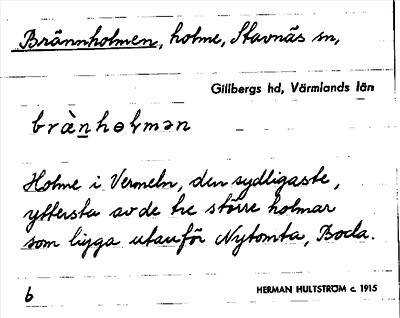 Brännholmen, holme, Stavnäs sn,
Gillbergs hd, Värmlands län
brànhɵlmən
Holme i Vermeln, den sydligaste,
yttersta av de tre större holmar
som ligga utanför Nytomta, Boda.
6
HERMAN HULTSTRÖM c. 1915